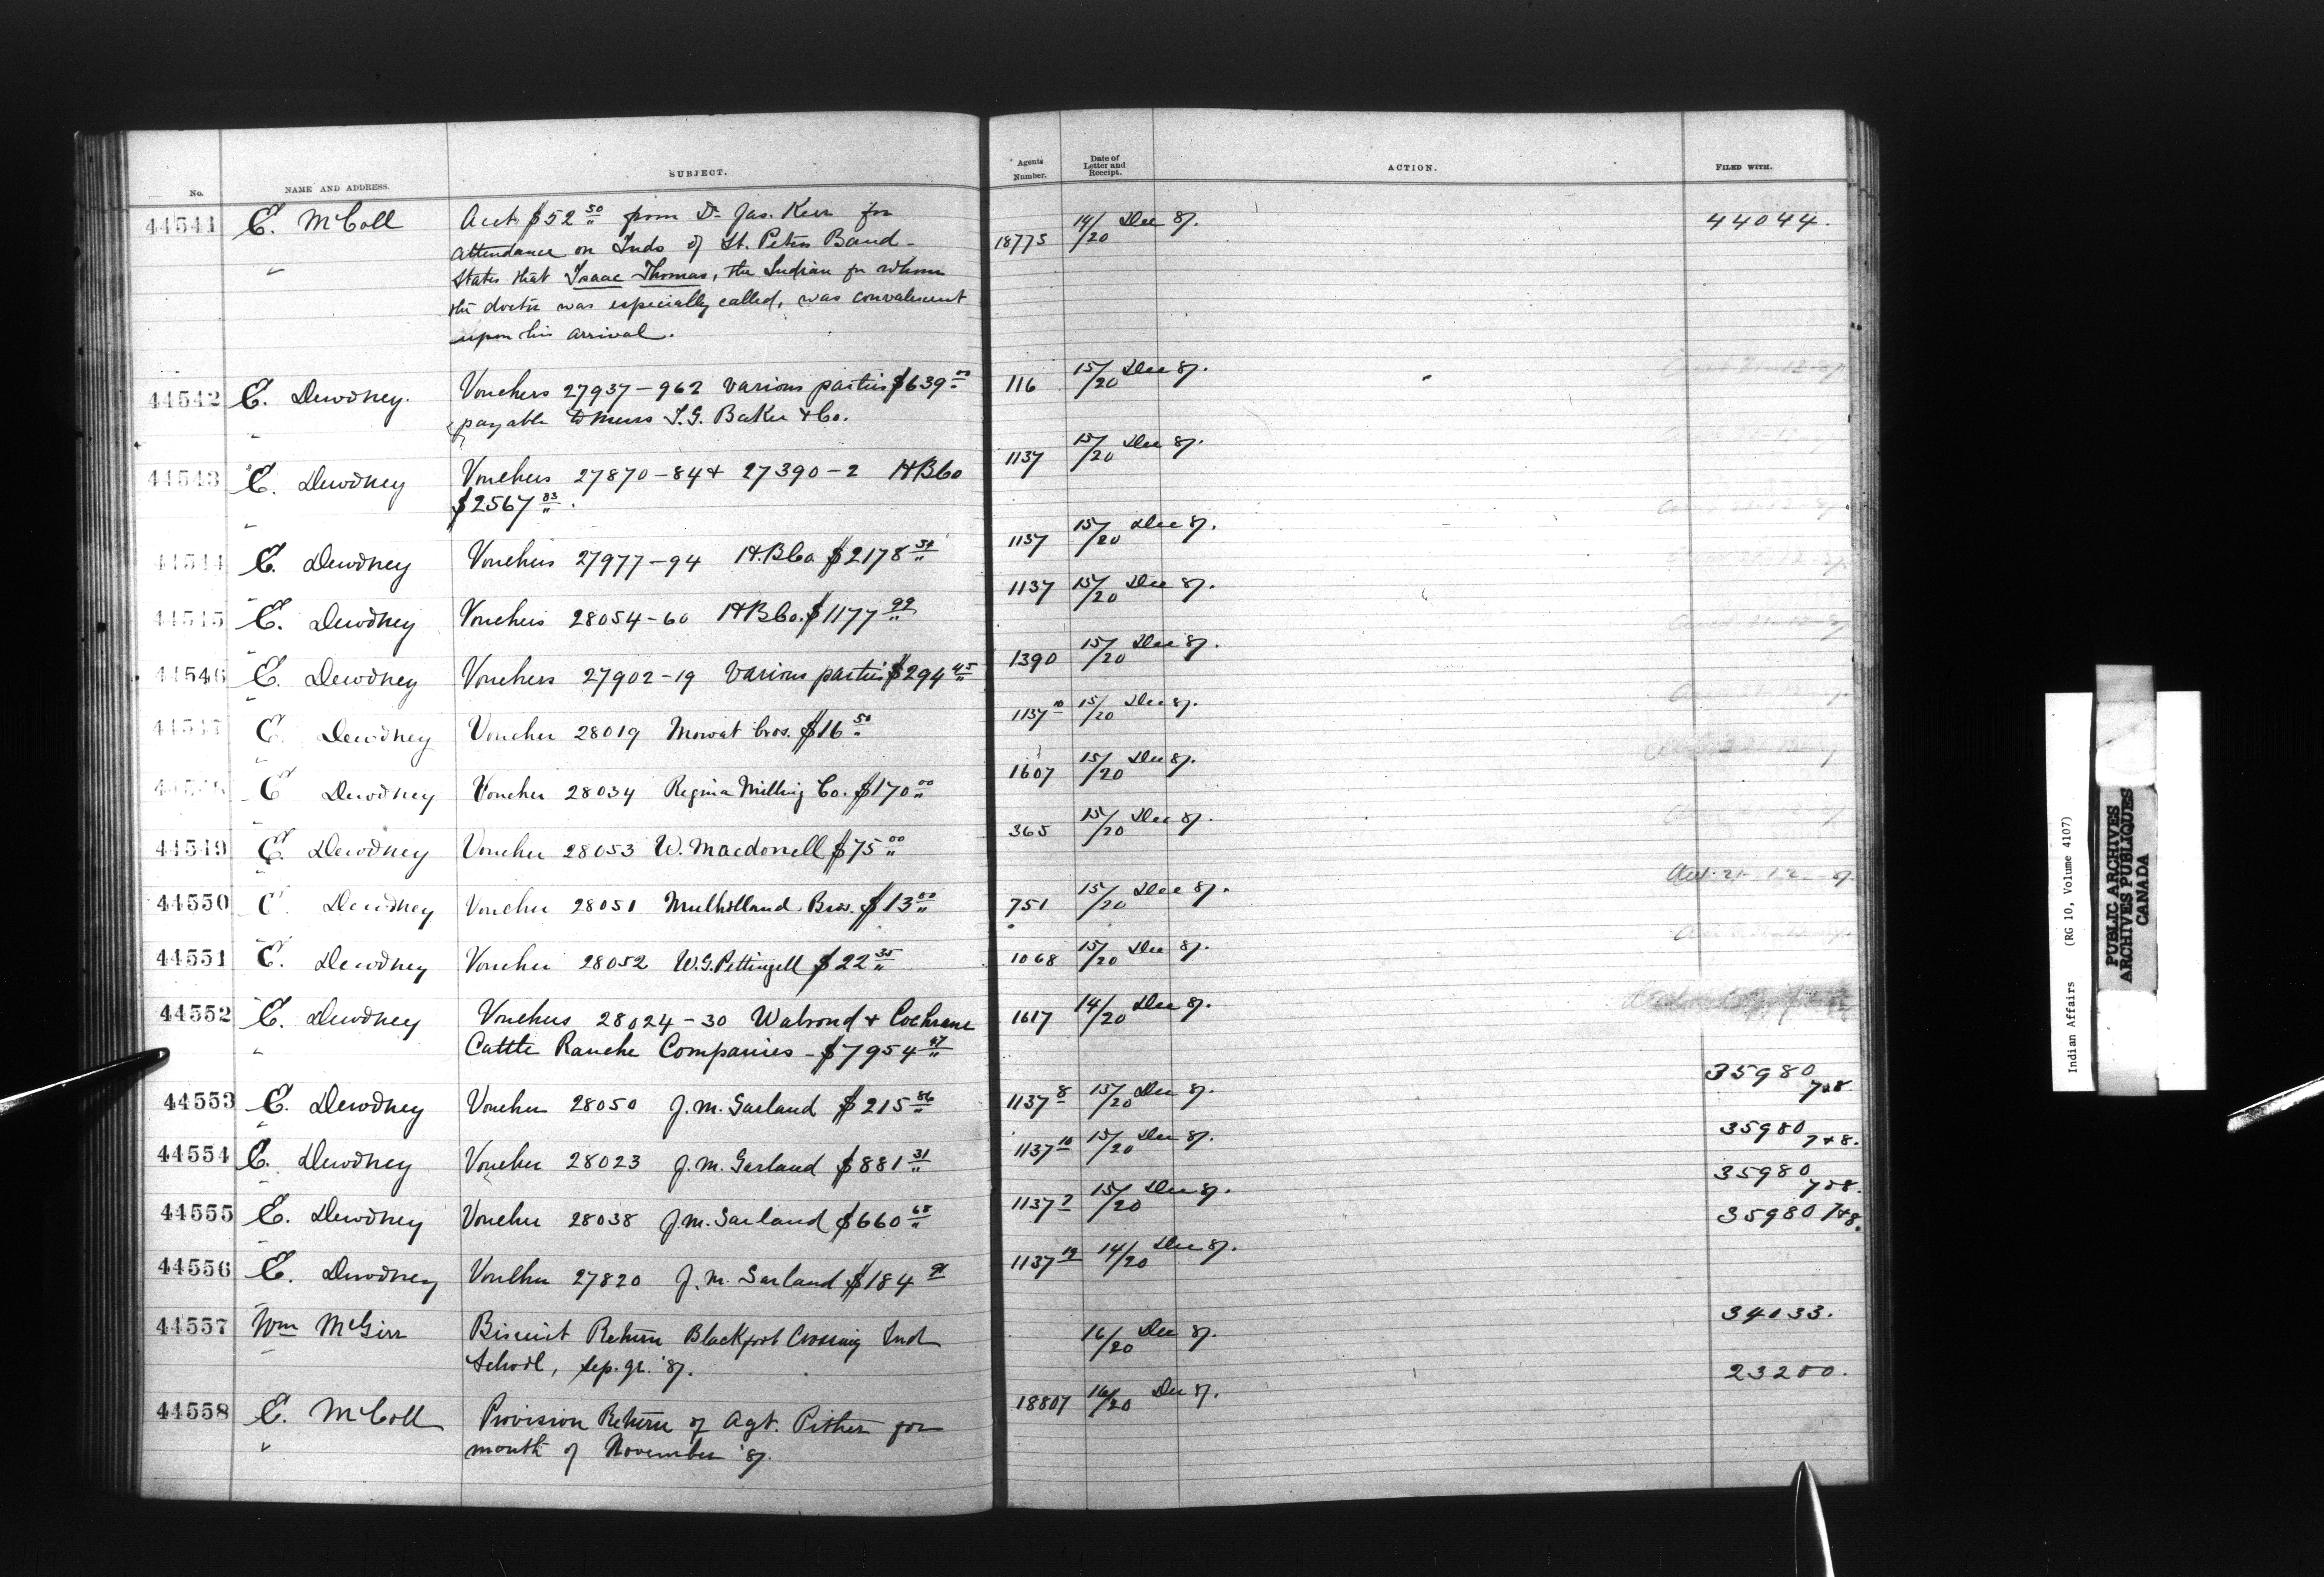 No. NAME AND ADDRESS. SUBJECT. Agents Number. Date of Letter and Receipt. ACTION. FILED WITH.
44541 E. McColl Acct $52 50 from Dr Jas. Kerr for 18775 14/20 Dec 87. 44044.
attendance on Inds of St. Peters Band -
States that Isaac Thomas, the Indian for whom
the doctor was especially called, was convalescent
upon his arrival.
44542 E. Dewdney. Vouchers 27937-962 various parties $639 00 116 15/20 Dec 87.
payable to Messrs I.G. Baker & Co.
44543 E. Dewdney Vouchers 27870-84 & 27390-2 H B Co 1137 15/20 Dec 87.
$2567 83.
44544 E. Dewdney Vouchers 27977-94 H.B Co $2178 54 1137 15/20 Dec 87.
44545 E. Dewdney Vouchers 28054-60 H B Co. $1177 99 1137 15/20 Dec 87.
44546 E. Dewdney Vouchers 27902-19 various parties $294 45 1390 15/20 Dec 87.
44547 E. Dewdney Voucher 28019 Mowat bros. $16 50 1137 10 15/20 Dec 87.
44548 E Dewdney Voucher 28034 Regina Milling Co. $170 00 1607 15/20 Dec 87.
44549 E. Dewdney Voucher 28053 W. Macdonell $75 00 365 15/20 Dec 87.
44550 E. Dewdney Voucher 28051 Mulholland Bros. $13 00 751 15/20 Dec 87. 21-12-87.
44551 E. Dewdney Voucher 28052 W.G. Pettingell $22 35 1068 15/20 Dec 87.
44552 E. Dewdney Vouchers 28024-30 Walrond & Cochrane 1617 14/20 Dec 87.
Cattle Ranche Companies - $7954 47
44553 E. Dewdney Voucher 28050 J.M. Garland $215 86 1137 8 15/20 Dec 87. 35980 7&8.
44554 E. Dewdney Voucher 28023 J.M. Garland $881 31 1137 10 15/20 Dec 87. 35980 7&8.
44555 E. Dewdney Voucher 28038 J.M. Garland $660 65 1137 7 15/20 Dec 87. 35980 7&8.
44556 E. Dewdney Voucher 27820 J.M. Garland $184 91 1137 12 14/20 Dec 87. 35980 7&8.
44557 Wm McGirr Biscuit Return Blackfoot Crossing Ind 16/20 Dec 87. 34033.
School, Sep. qr. '87.
44558 E. McColl Provision Return of Agt. Pither for 18807 16/20 Dec 87. 23200.
month of November '87.
Indian Affairs (RG 10, Volume 4107)
PUBLIC ARCHIVES
ARCHIVES PUBLIQUES
CANADA